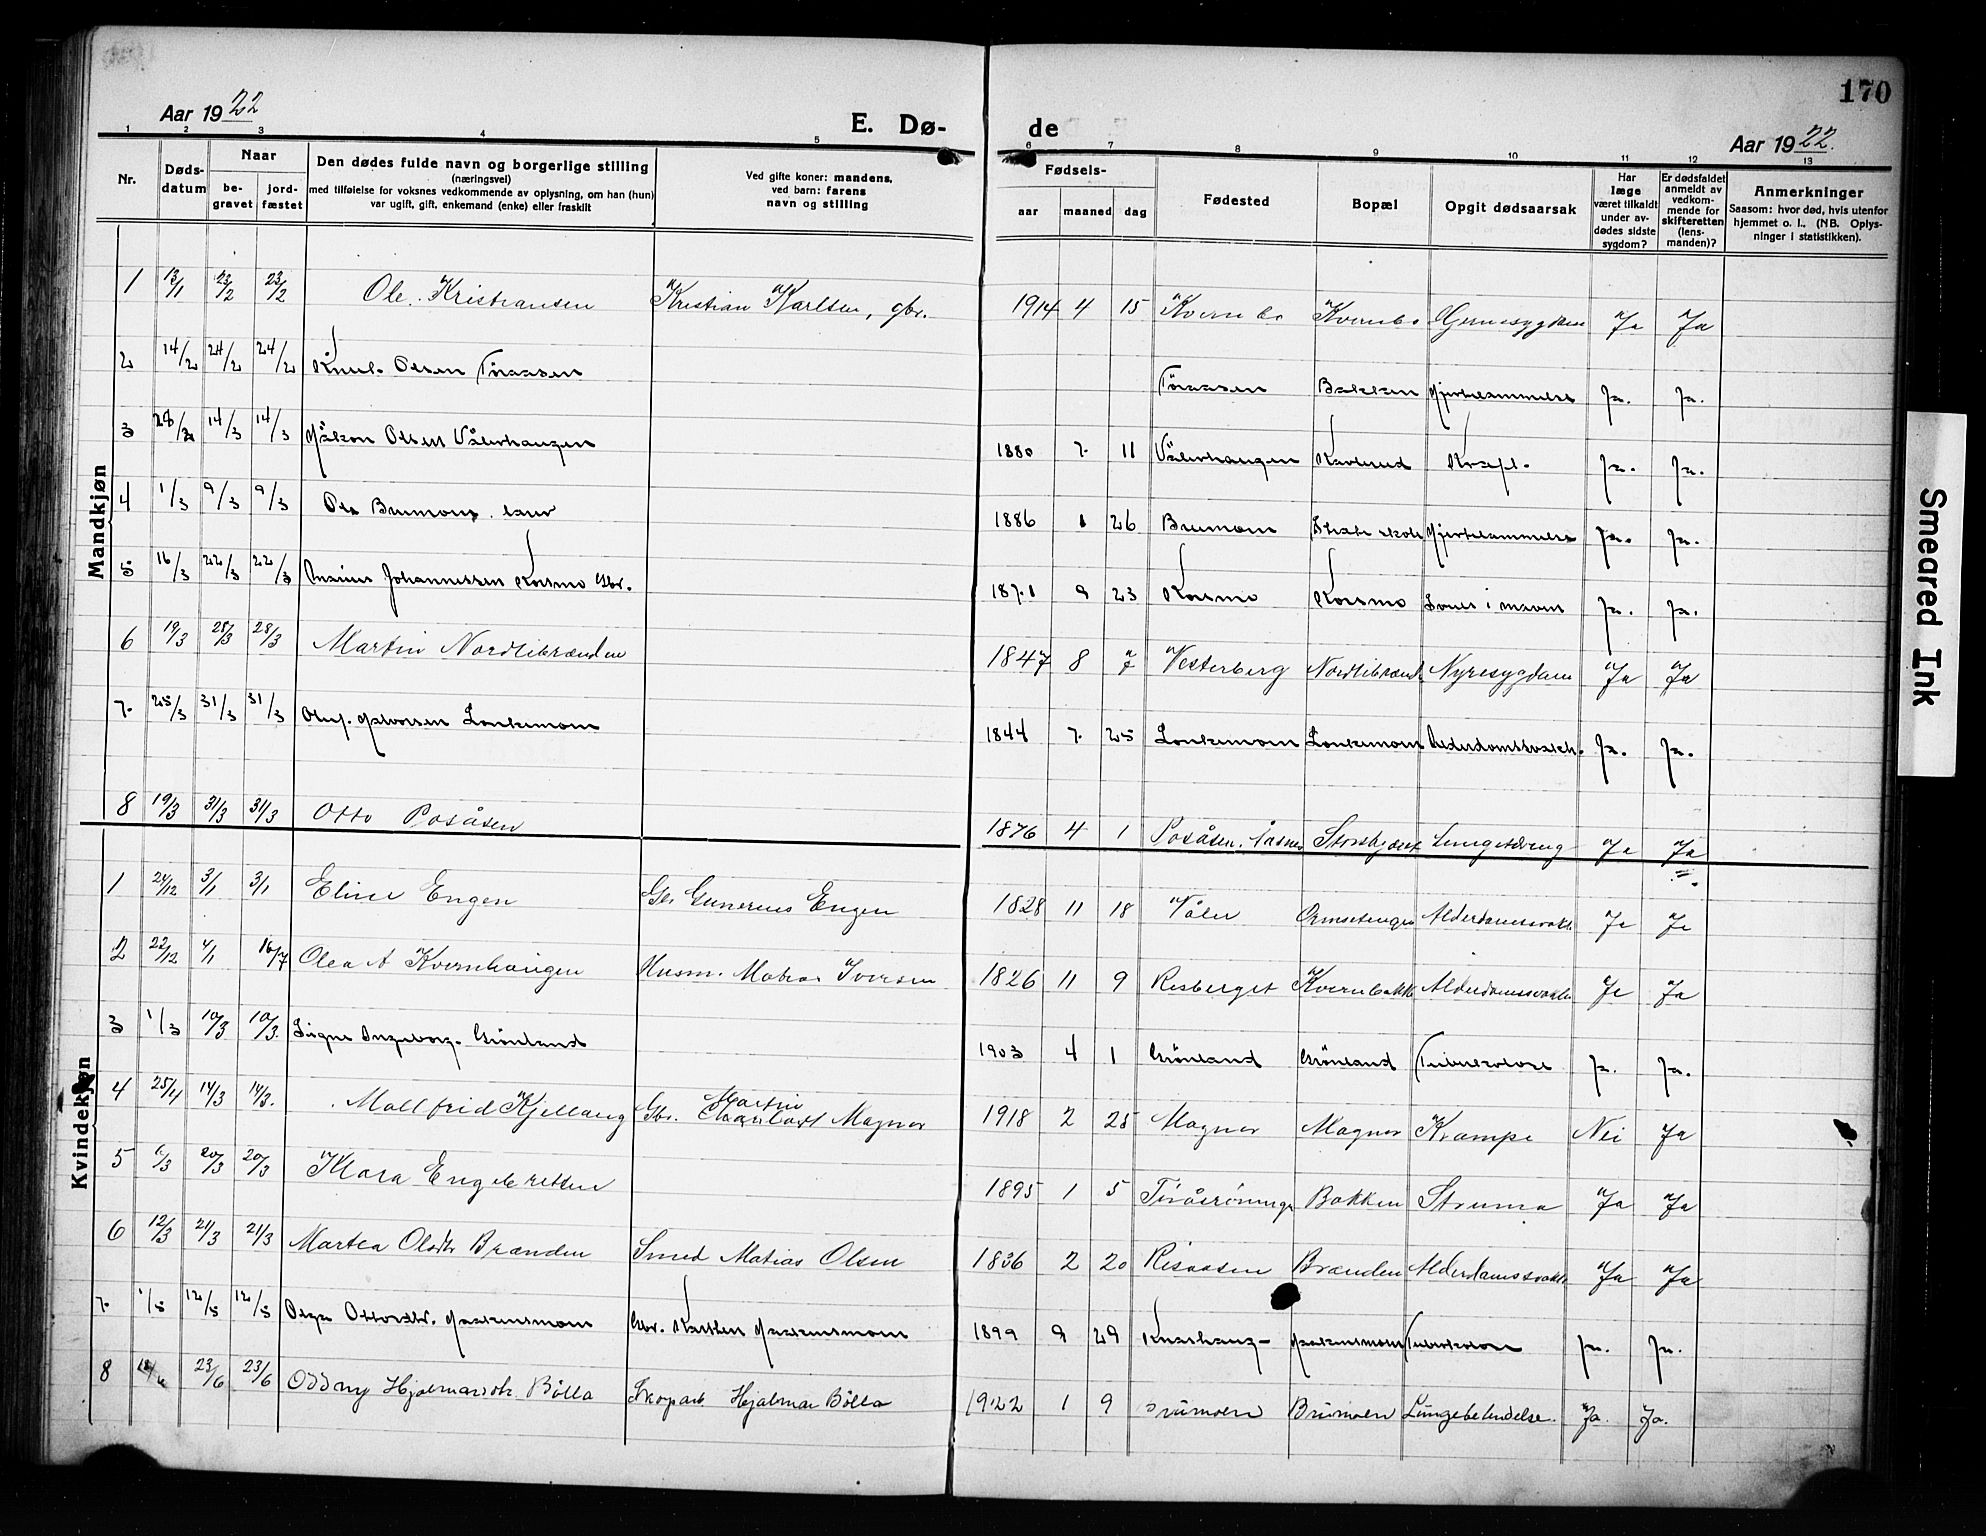 170
Aar 1922
E. Dø-
de
Aar 1922.
1 2 3 4 5 6 7 8 9 10 11 12 13
Nr.
Døds-
datum
Naar
be-
gravet
jord-
fæstet
Den dødes fulde navn og borgerlige stilling
(næringsvei)
med tilføielse for voksnes vedkommende av oplysning, om han (hun)
var ugift, gift, enkemand (enke) eller fraskilt
Ved gifte koner: mandens,
ved barn: farens
navn og stilling
Fødsels-
aar maaned dag
Fødested
Bopæl
Opgit dødsaarsak
Har
læge
været tilkaldt
under av-
dødes sidste
sygdom?
Er dødsfaldet
anmeldt av
vedkom-
mende for
skifteretten
(lens-
manden)?
Anmerkninger
Saasom: hvor død, hvis utenfor
hjemmet o. l., (NB. Oplys-
ninger i statistikken).
Mandkjøn
1 13/1 23/2 23/2 Ole Kristiansen Kristian Karlsen, gbr. 1914 4 15 Kvernbo Kvernbo Ja Ja
2 14/2 24/2 24/2 Knut Olsen Tøraasen Tøraasen Bakken Hjertelammelse Ja. Ja.
3 14/3 14/3 Håkon Olsen Vålerhaugen 1880 7. 11 Vålerhaugen Kræft. Ja. Ja.
4 1/3 9/3 9/3 Ole Brumoen 1886 1 26 Brumoen Hjertelammelse Ja. Ja.
5 16/3 22/3 22/3 Marius Johannessen Kosmo Gbr. 1871 9 23 Kosmo Kosmo Ja. Ja.
6 19/3 28/3 28/3 Martin Nordlibrænden 1847 8 7 Vesterberg Nordlibrænd. Nyresygdom Ja Ja
7. 25/3 31/3 31/3 Oluf Halvorsen Lonkemoen 1844 7. 25 Lonkemoen Lonkemoen Alderdomssvakh. Ja. Ja.
8 19/3 31/3 31/3 Otto Posåsen 1876 4 1 Posåsen, Åsnes Ja Ja
Kvindekjøn
1 24/12 3/1 3/1 Eline Engen Gb. Gunerius Engen 1828 11 18 Våler Alderdomssvakh. Ja Ja
2 22/12 4/1 16/7 Olea A Kvernhaugen Husm. Matias Iversen 1826 11 9 Risberget Kvernbakk Alderdomssvakh. Ja Ja
3 1/3 10/3 10/3. Signe Ingeborg Grönland 1903 4 1 Grönland Grönland Tuberkolose Ja. Ja.
4 25/4 14/3 14/3. Mallfrid Kjellaug Gbr. Martin Magnor 1918 2 25 Magnor Magnor Krampe Nei Ja
5 6/3 20/3 20/3 Klara Engebretsen 1895 1 5 Bakken Struma Ja Ja
6 12/3 21/3 21/3 Martea Olsdtr Brænden Smed Matias Olsen 1836 2 20 Risaasen Brænden Alderdomssvakh. Ja Ja
7. 1/5 12/5 12/5 Olga Ottosdtr. Haakensmoen Gbr. Karsten Haakensmoen 1899 9 29 Haakensmoen Tuberkolose Ja. Ja.
8 23/6 23/6 Oddny Hjalmarsdtr. Bölla Skogsarb Hjalmar Bölla 1922 1 9 Brumoen Brumoen Lungebetendelse. Ja. Ja.
Smeared Ink